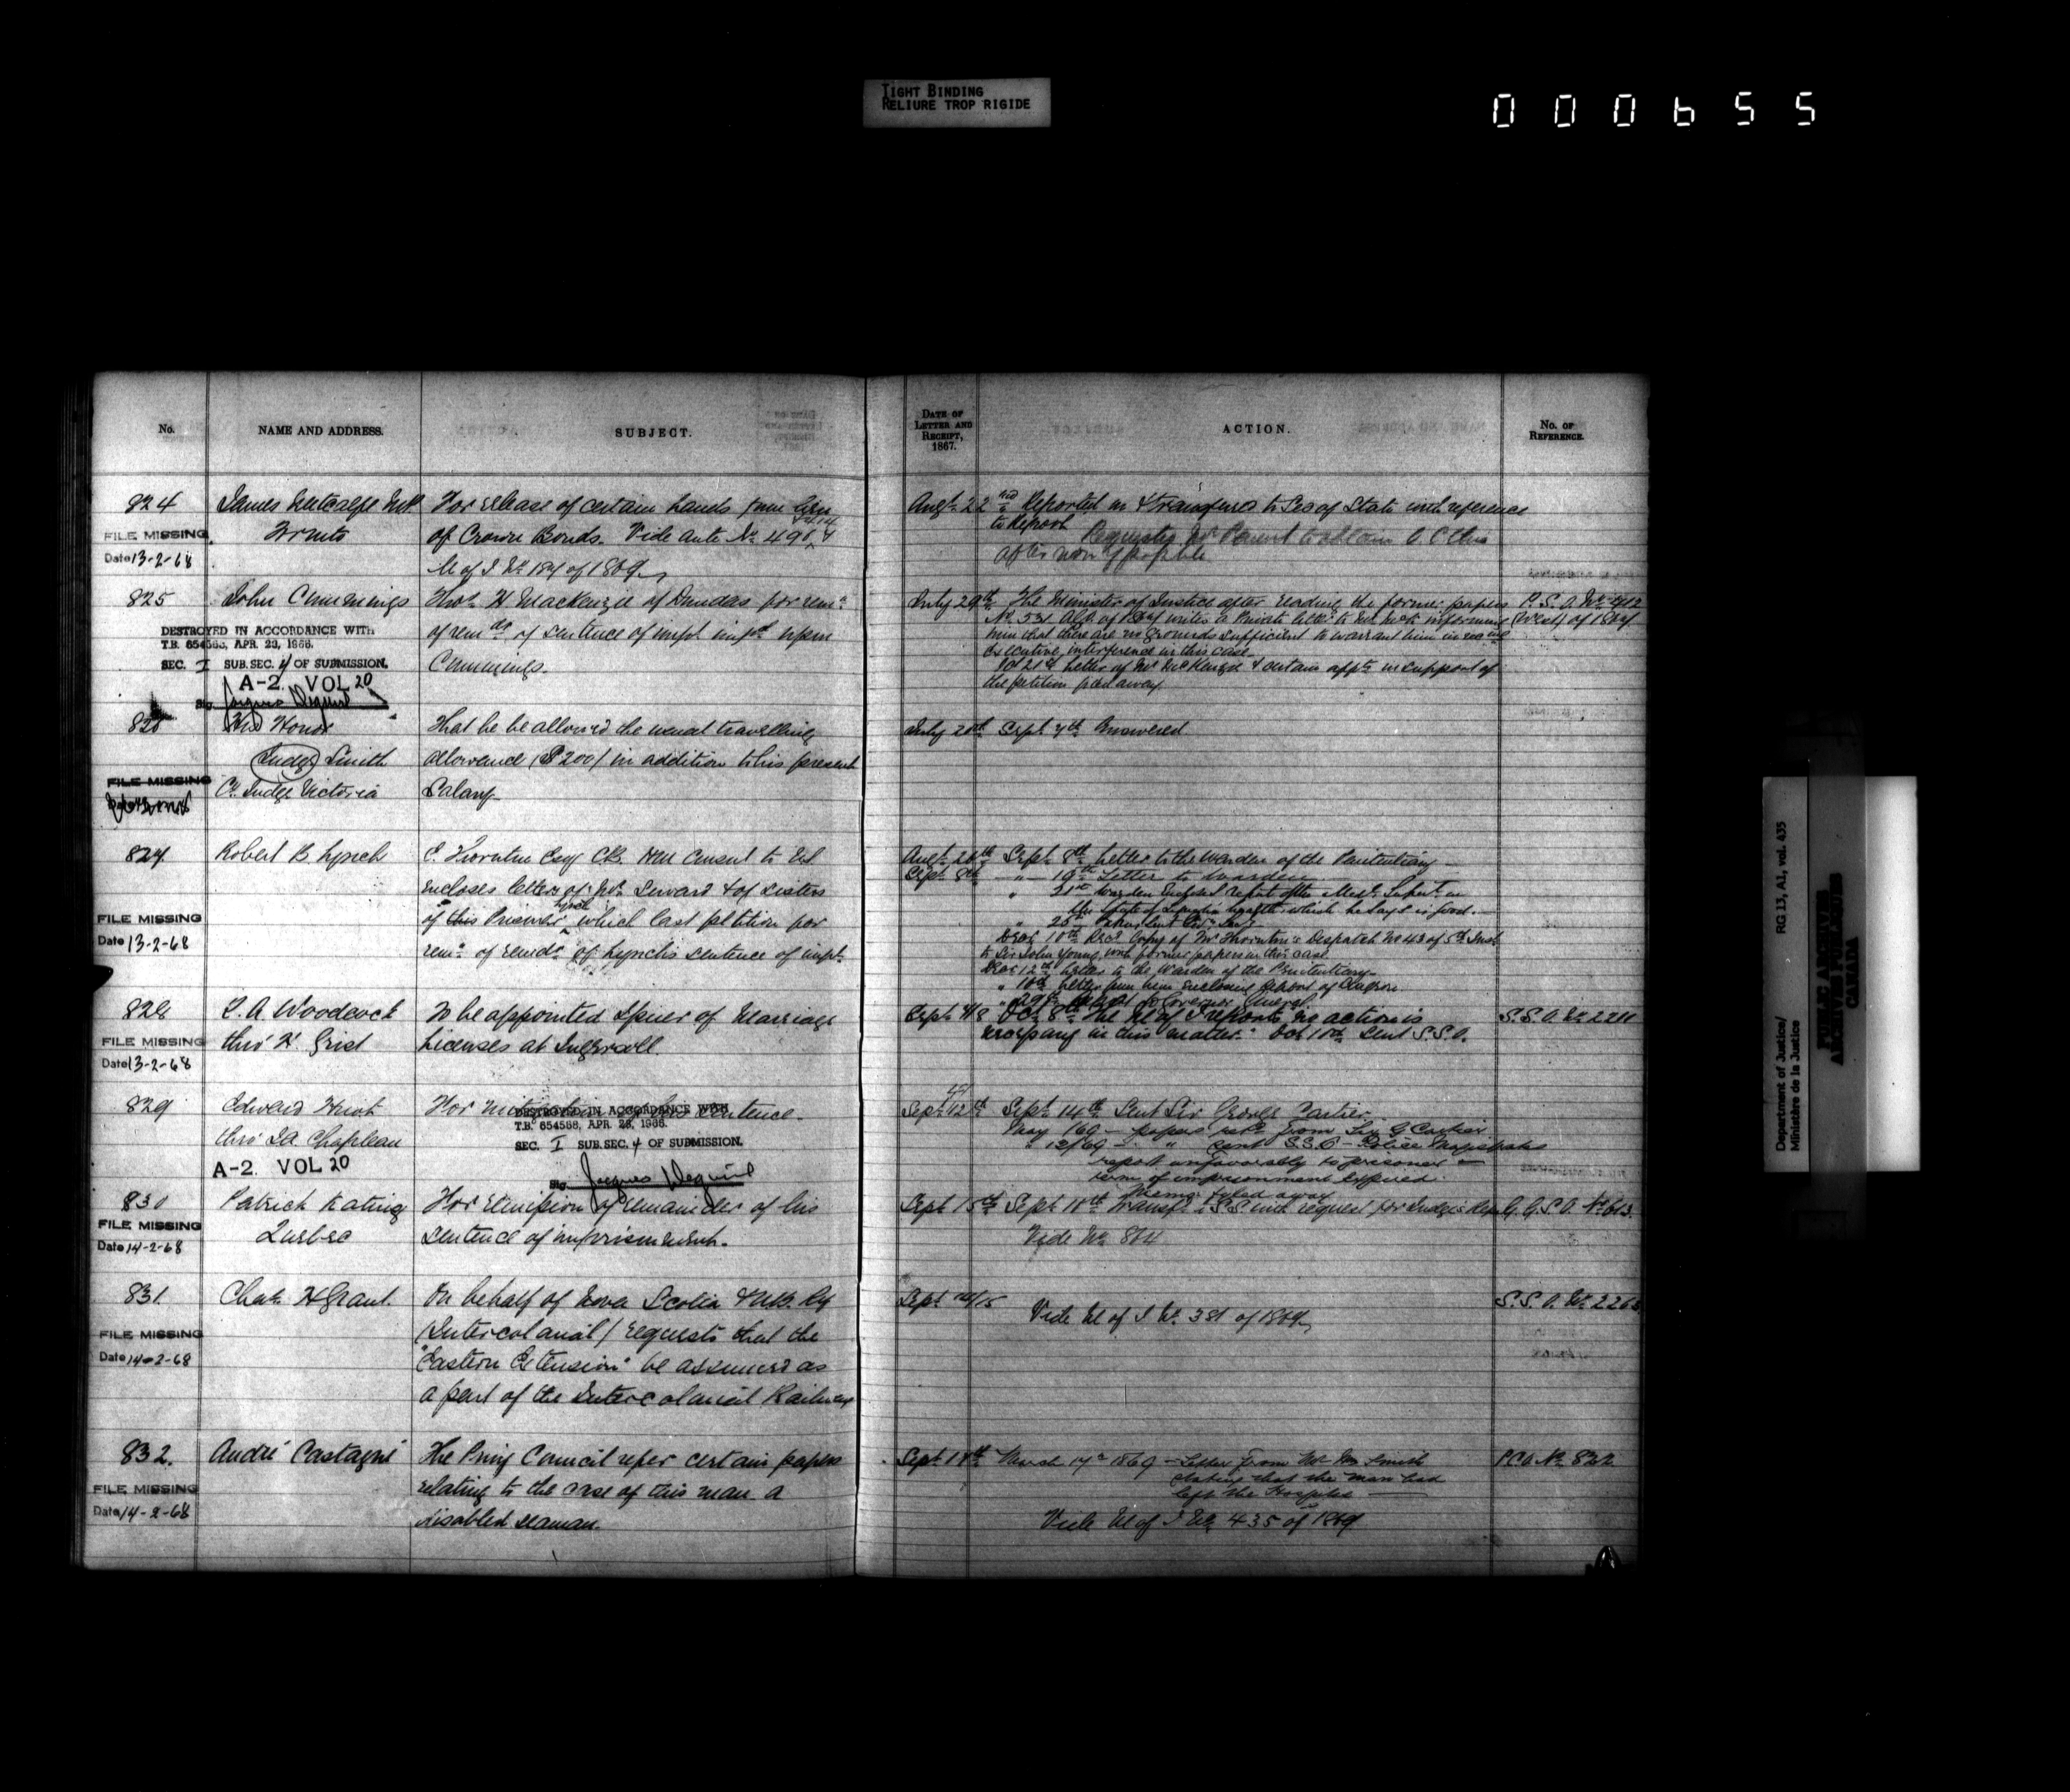 TIGHT BINDING
RELIURE TROP RIGIDE
000655
No.
NAME AND ADDRESS.
SUBJECT.
DATE OF LETTER AND RECEIPT, 1867.
ACTION.
No. OF REFERENCE.
824
James Metcalfe M.P.
Toronto
FILE MISSING
Date 13-2-68
For release of certain lands from lien
of Crown Bonds. Vide ante No 498
M of J No 184 of 1869
Augt 22nd Reported on & transferred to Sec of State with reference
to Report
Requested Mr Parent to obtain O.C. this
afternoon if possible
825
John Cummings
DESTROYED IN ACCORDANCE WITH
T.B. 654566, APR. 23, 1966.
SEC. I SUB.SEC. 4 OF SUBMISSION.
A-2. VOL 20
Thos H MacKenzie of Dundas for remn
of remdr of sentence of impt impd upon
Cummings.
July 29th The Minister of Justice after reading the former papers
No 531 of 1867 writes a Private letter to informing
him that there are no grounds sufficient to warrant him in
executive interference in this case.
Oct 21st Letter of Mr McKenzie & certain in support of
the petition put away.
P.S.O. No 712
(West) of 1867
826
His Honor
Judge Smith
Co. Judge Victoria
FILE MISSING
That he be allowed the usual travelling
allowance ($200) in addition to his present
Salary
July 20th Sept 7th Answered
827
Robert B. Lynch
FILE MISSING
Date 13-2-68
E. Thornton Esq CB. HM Consul to
encloses letters of Mr Seward & of sisters
of this Prisoner Lynch which last petition for
remn of remdr of Lynch's sentence of impt.
Augt 26th Sept 8th Letter to the Warden of the Penitentiary
Sept 8th " 19th Letter to Warden
" 21st Warden enclosed report of the
the state of health which he says is good.
" 25th
Decr 10th Recd Copy of Mr Thornton's Despatch No 43 of 5th Inst
to Sir John Young with former papers in this case.
Decr 12th Letter to the Warden of the Penitentiary
" 18th Letter from him enclosing Report of Surgeon
" 29th Report to Governor General.
828
T. A. Woodcock
thro' H. Grist
FILE MISSING
Date 13-2-68
To be appointed Issuer of Marriage
Licenses at Ingersoll.
Sept 7/8 Oct 8th The M of J reports no action is
necessary in this matter. Oct 10th Sent S.S.O.
829
Edward
thro' J.A. Chapleau
A-2. VOL 20
For mitigation of his sentence
DESTROYED IN ACCORDANCE WITH
T.B. 654566, APR. 23, 1966.
SEC. I SUB.SEC. 4 OF SUBMISSION.
Sept 12th Sept 14th Sent Sir George Cartier
papers retd from Sir G Cartier
" 12/69 " sent S.S.O - Police Magistrates
report unfavorably to prisoner
term of imprisonment expired.
Memo: fyled away
830
Patrick Kating
Quebec
FILE MISSING
Date 14-2-68
For remission of remainder of his
sentence of imprisonment.
Sept 15th Sept 18th Transfd S.S with request for Judge's Rep
Vide No 804
G.G.S.O. No 613.
831.
Chas H Grant.
FILE MISSING
Date 14-2-68
On behalf of Nova Scotia & N.B. Ry
(Intercolonial) requests that the
"Eastern Extension" be assumed as
a part of the Intercolonial Railway
Sept 14/15
Vide M of J No 381 of 1869
832.
André Castagné
FILE MISSING
Date 14-2-68
The Privy Council refer certain papers
relating to the case of this man a
disabled seaman.
Sept 17th March 17th 1869 - Letter from Mr Wm Smith
stating that the man had
left the Hospital
Vide M of J No 435 of 1869
P.C.O. No 822
Department of Justice/ RG 13, A1, vol. 435
Ministère de la Justice
PUBLIC ARCHIVES
ARCHIVES PUBLIQUES
CANADA